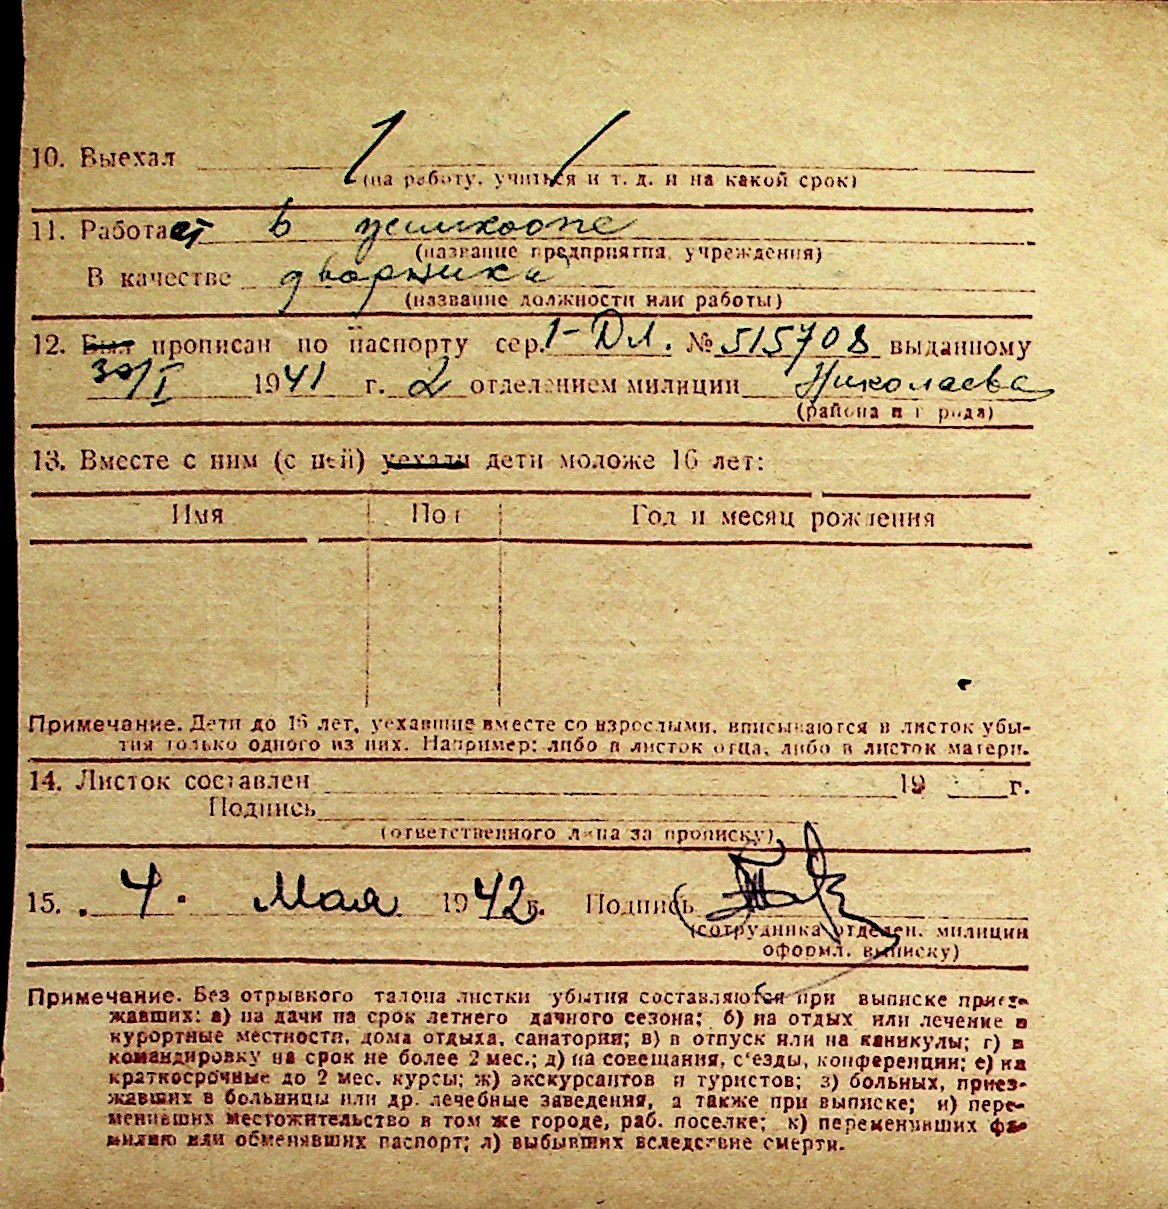 10. Выехал
(на работу, учиться и т. д. и на какой срок)
11. Работает в
(название предприятия, учреждения)
В качестве дворника
(название должности или работы)
12. Был прописан по паспорту сер. 1-ДЛ. № 515708 выданному
30/I 1941 г. 2 отделением милиции Николаева
(района и города)
13. Вместе с ним (с ней) уехали дети моложе 16 лет:
Имя Пол Год и месяц рождения
Примечание. Дети до 16 лет, уехавшие вместе со взрослыми, вписываются в листок убы-
тия только одного из них. Например: либо в листок отца, либо в листок матери.
14. Листок составлен 19 г.
Подпись
(ответственного лица за прописку)
15. 4. Мая 1942 г. Подпись
(сотрудника отделен. милиции
оформл. выписку)
Примечание. Без отрывного талона листки убытия составляются при выписке приез-
жавших: а) на дачи на срок летнего дачного сезона; б) на отдых или лечение в
курортные местности, дома отдыха, санатории; в) в отпуск или на каникулы; г) в
командировку на срок не более 2 мес.; д) на совещания, с'езды, конференции; е) на
краткосрочные до 2 мес. курсы; ж) экскурсантов и туристов; з) больных, приез-
жавших в больницы или др. лечебные заведения, а также при выписке; и) пере-
менивших местожительство в том же городе, раб. поселке; к) переменивших фа-
милию или обменявших паспорт; л) выбывших вследствие смерти.